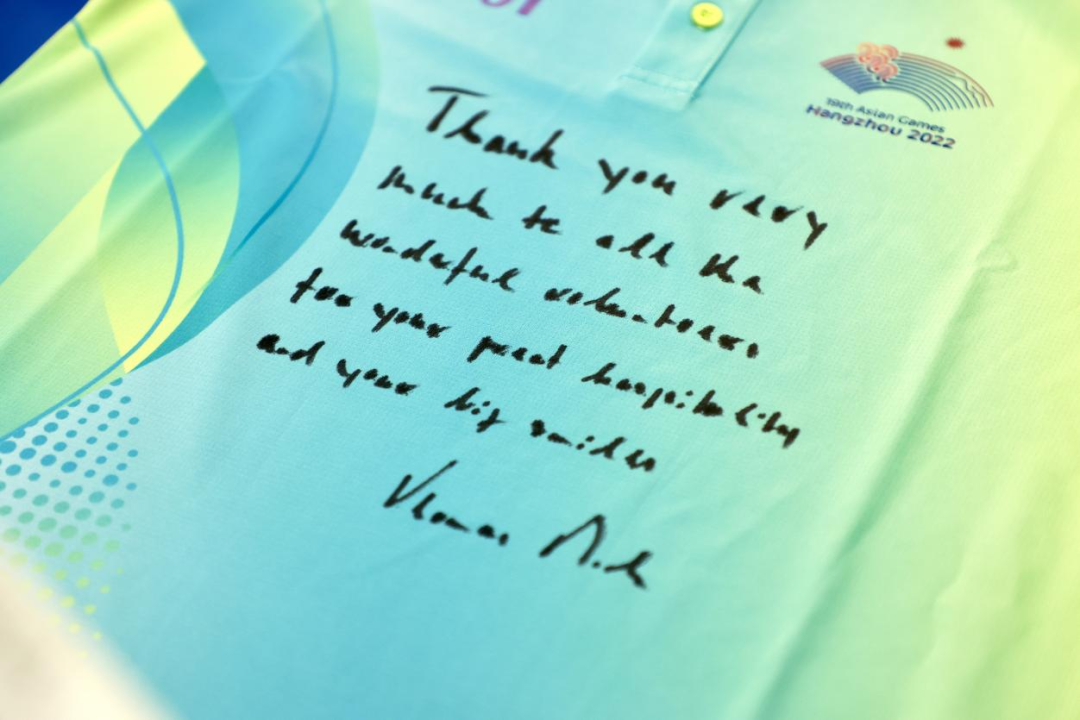 19th Asian Games
Hangzhou 2022
Thank you very
much to all the
wonderful volunteers
for your great hospitality
and your big smiles
Thomas Bach